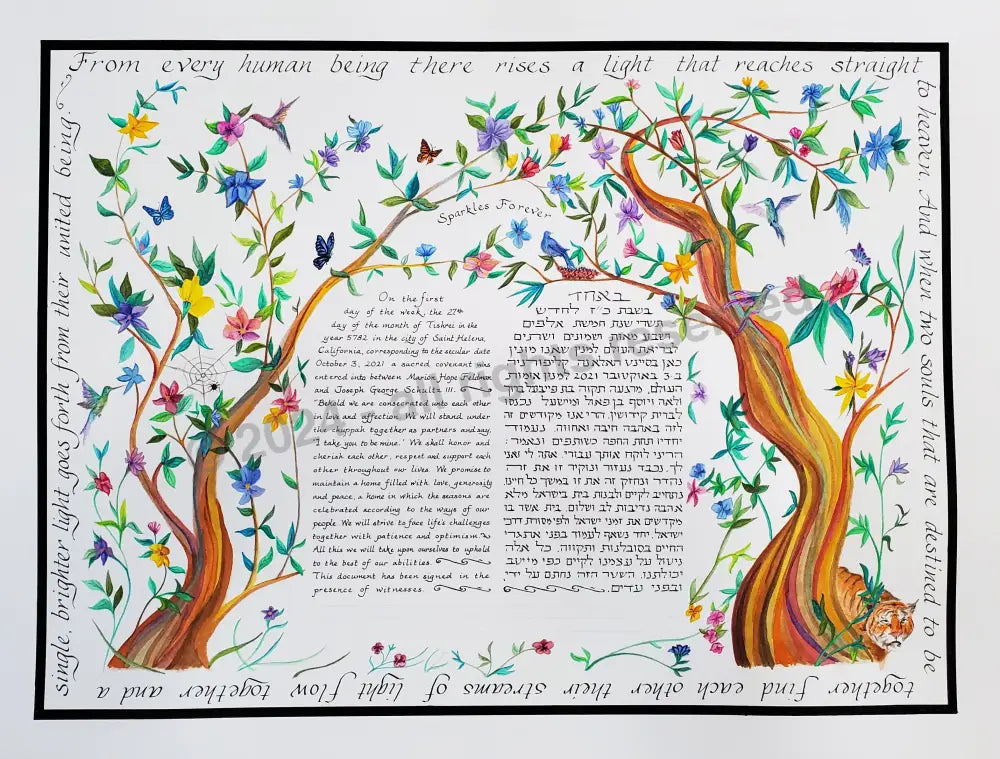 From every human being there rises a light that reaches straight
to heaven. And when two souls that are destined to be
together find each other their streams of light flow together and a
single, brighter light goes forth from their united being.
Sparkles Forever
On the first
day of the week, the 27th
day of the month of Tishrei in the
year 5782 in the city of Saint Helena,
California, corresponding to the secular date
October 3, 2021 a sacred covenant was
entered into between Marion Hope Feldman
and Joseph George Schultz III.
"Behold we are consecrated unto each other
in love and affection. We will stand under
the chuppah together as partners and say,
'I take you to be mine.' We shall honor and
cherish each other, respect and support each
other throughout our lives. We promise to
maintain a home filled with love, generosity
and peace, a home in which the seasons are
celebrated according to the ways of our
people. We will strive to face life's challenges
together with patience and optimism.
All this we will take upon ourselves to uphold
to the best of our abilities.
This document has been signed in the
presence of witnesses.
באחד
בשבת כ״ז לחדש
תשרי שנת חמשת אלפים
ושבע מאות ושמונים ושתים
לבריאת העולם למנין שאנו מונין
כאן בסיינט האלענא, קליפורניה
ב-3 באוקטובר 2021 למנין אומות
העולם,
לברית קידושין. הרי אנו מקודשים זה
לזה באהבה חיבה ואחווה. נעמוד
יחדיו תחת החפה כשותפים ונאמר:
לך. נכבד נעזור ונוקיר זו את זה.
נהדר ונחזק זה את זו במשך כל חיינו.
נתחייב לקיים ולבנות בית בישראל מלא
אהבה נדיבות לב ושלום, בית אשר בו
מקדשים את זמני ישראל
ישראל. יחד נשאף לעמוד בפני אתגרי
החיים בסובלנות ותקווה. כל אלה
ניטול על עצמנו לקיים כפי מיטב
יכולתנו. השטר הזה נחתם על ידי
ובפני עדים.
©2024 - all rights reserved